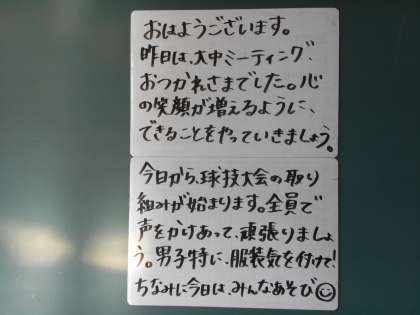 おはようございます。
昨日は、大中ミーティング、
おつかれさまでした。心
の笑顔が増えるように、
できることをやっていきましょう。
今日から、球技大会の取り
組みが始まります。全員で
声をかけあって、頑張りましょ
う。男子特に、服装気を付けて!
ちなみに今日は、みんなあそび☺